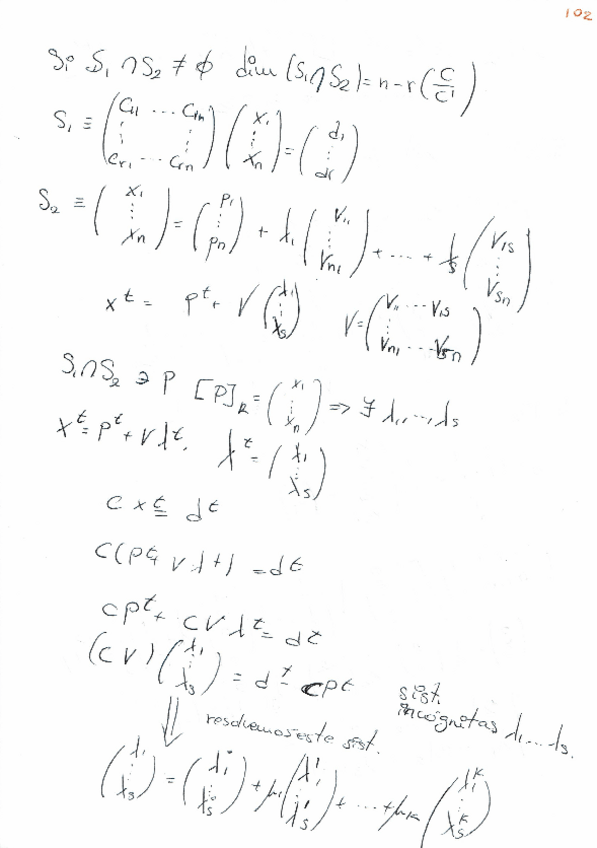 102
Si S₁ ∩ S₂ ≠ ∅ dim (S₁∩S₂) = n - r (C/C')
S₁ ≡ (C₁₁ ... C₁ₙ ⋮ ⋮ Cᵣ₁ ... Cᵣₙ) (x₁ ⋮ xₙ) = (d₁ ⋮ dᵣ)
S₂ ≡ (x₁ ⋮ xₙ) = (p₁ ⋮ pₙ) + λ₁ (V₁₁ ⋮ Vₙ₁) + ... + λₛ (V₁ₛ ⋮ Vₛₙ)
xᵗ = pᵗ + V (λ₁ ⋮ λₛ) V = (V₁₁ ... V₁ₛ ⋮ Vₙ₁ ... Vₛₙ)
S₁∩S₂ ∋ P [P]_R = (x₁ ⋮ xₙ) ⇒ ∃ λ₁, ..., λₛ
xᵗ = pᵗ + Vλᵗ. λᵗ = (λ₁ ⋮ λₛ)
C xᵗ = dᵗ
C(pᵗ + Vλᵗ) = dᵗ
Cpᵗ + CVλᵗ = dᵗ
(CV) (λ₁ ⋮ λₛ) = dᵗ - Cpᵗ sist. incógnitas λ₁...λₛ.
⇓ resolvemos este sist.
(λ₁ ⋮ λₛ) = (λ₁⁰ ⋮ λₛ⁰) + μ₁ (λ₁¹ ⋮ λₛ¹) + ... + μₖ (λ₁ᵏ ⋮ λₛᵏ)